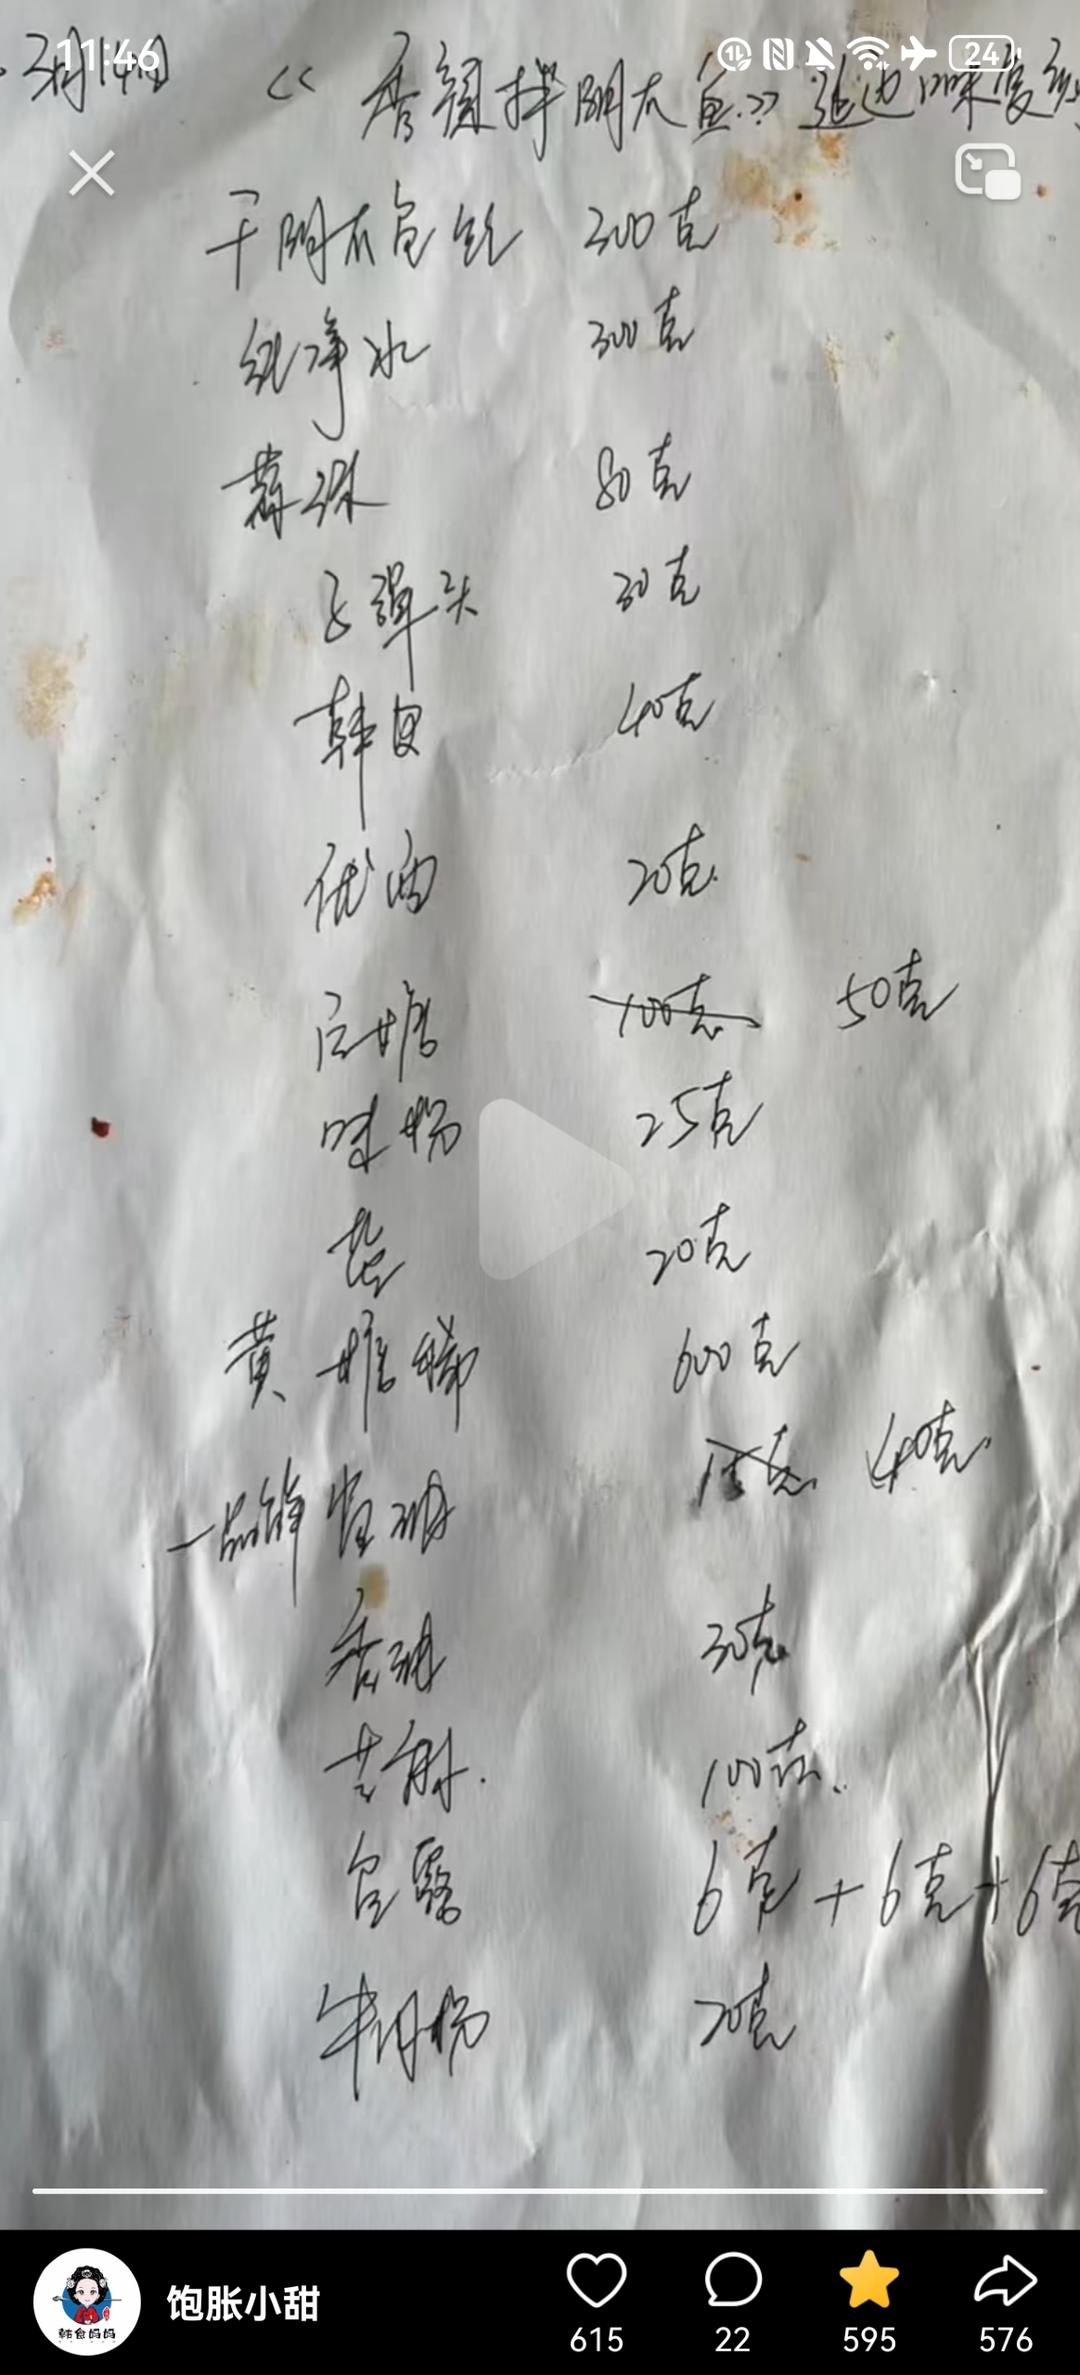 11:46 24
3月14日 《香辣拌明太鱼》延边口味复刻
干明太鱼丝 300克
纯净水 300克
蒜沫 80克
子弹头 30克
韩国 40克
20克
白糖 100克 50克
味粉 25克
盐 20克
黄糖稀 600克
一品鲜酱油 15克 40克
香油 30克
芝麻 100克
鱼露 6克+6克+6克
牛肉粉 20克
饱胀小甜
韩食妈妈
615 22 595 576